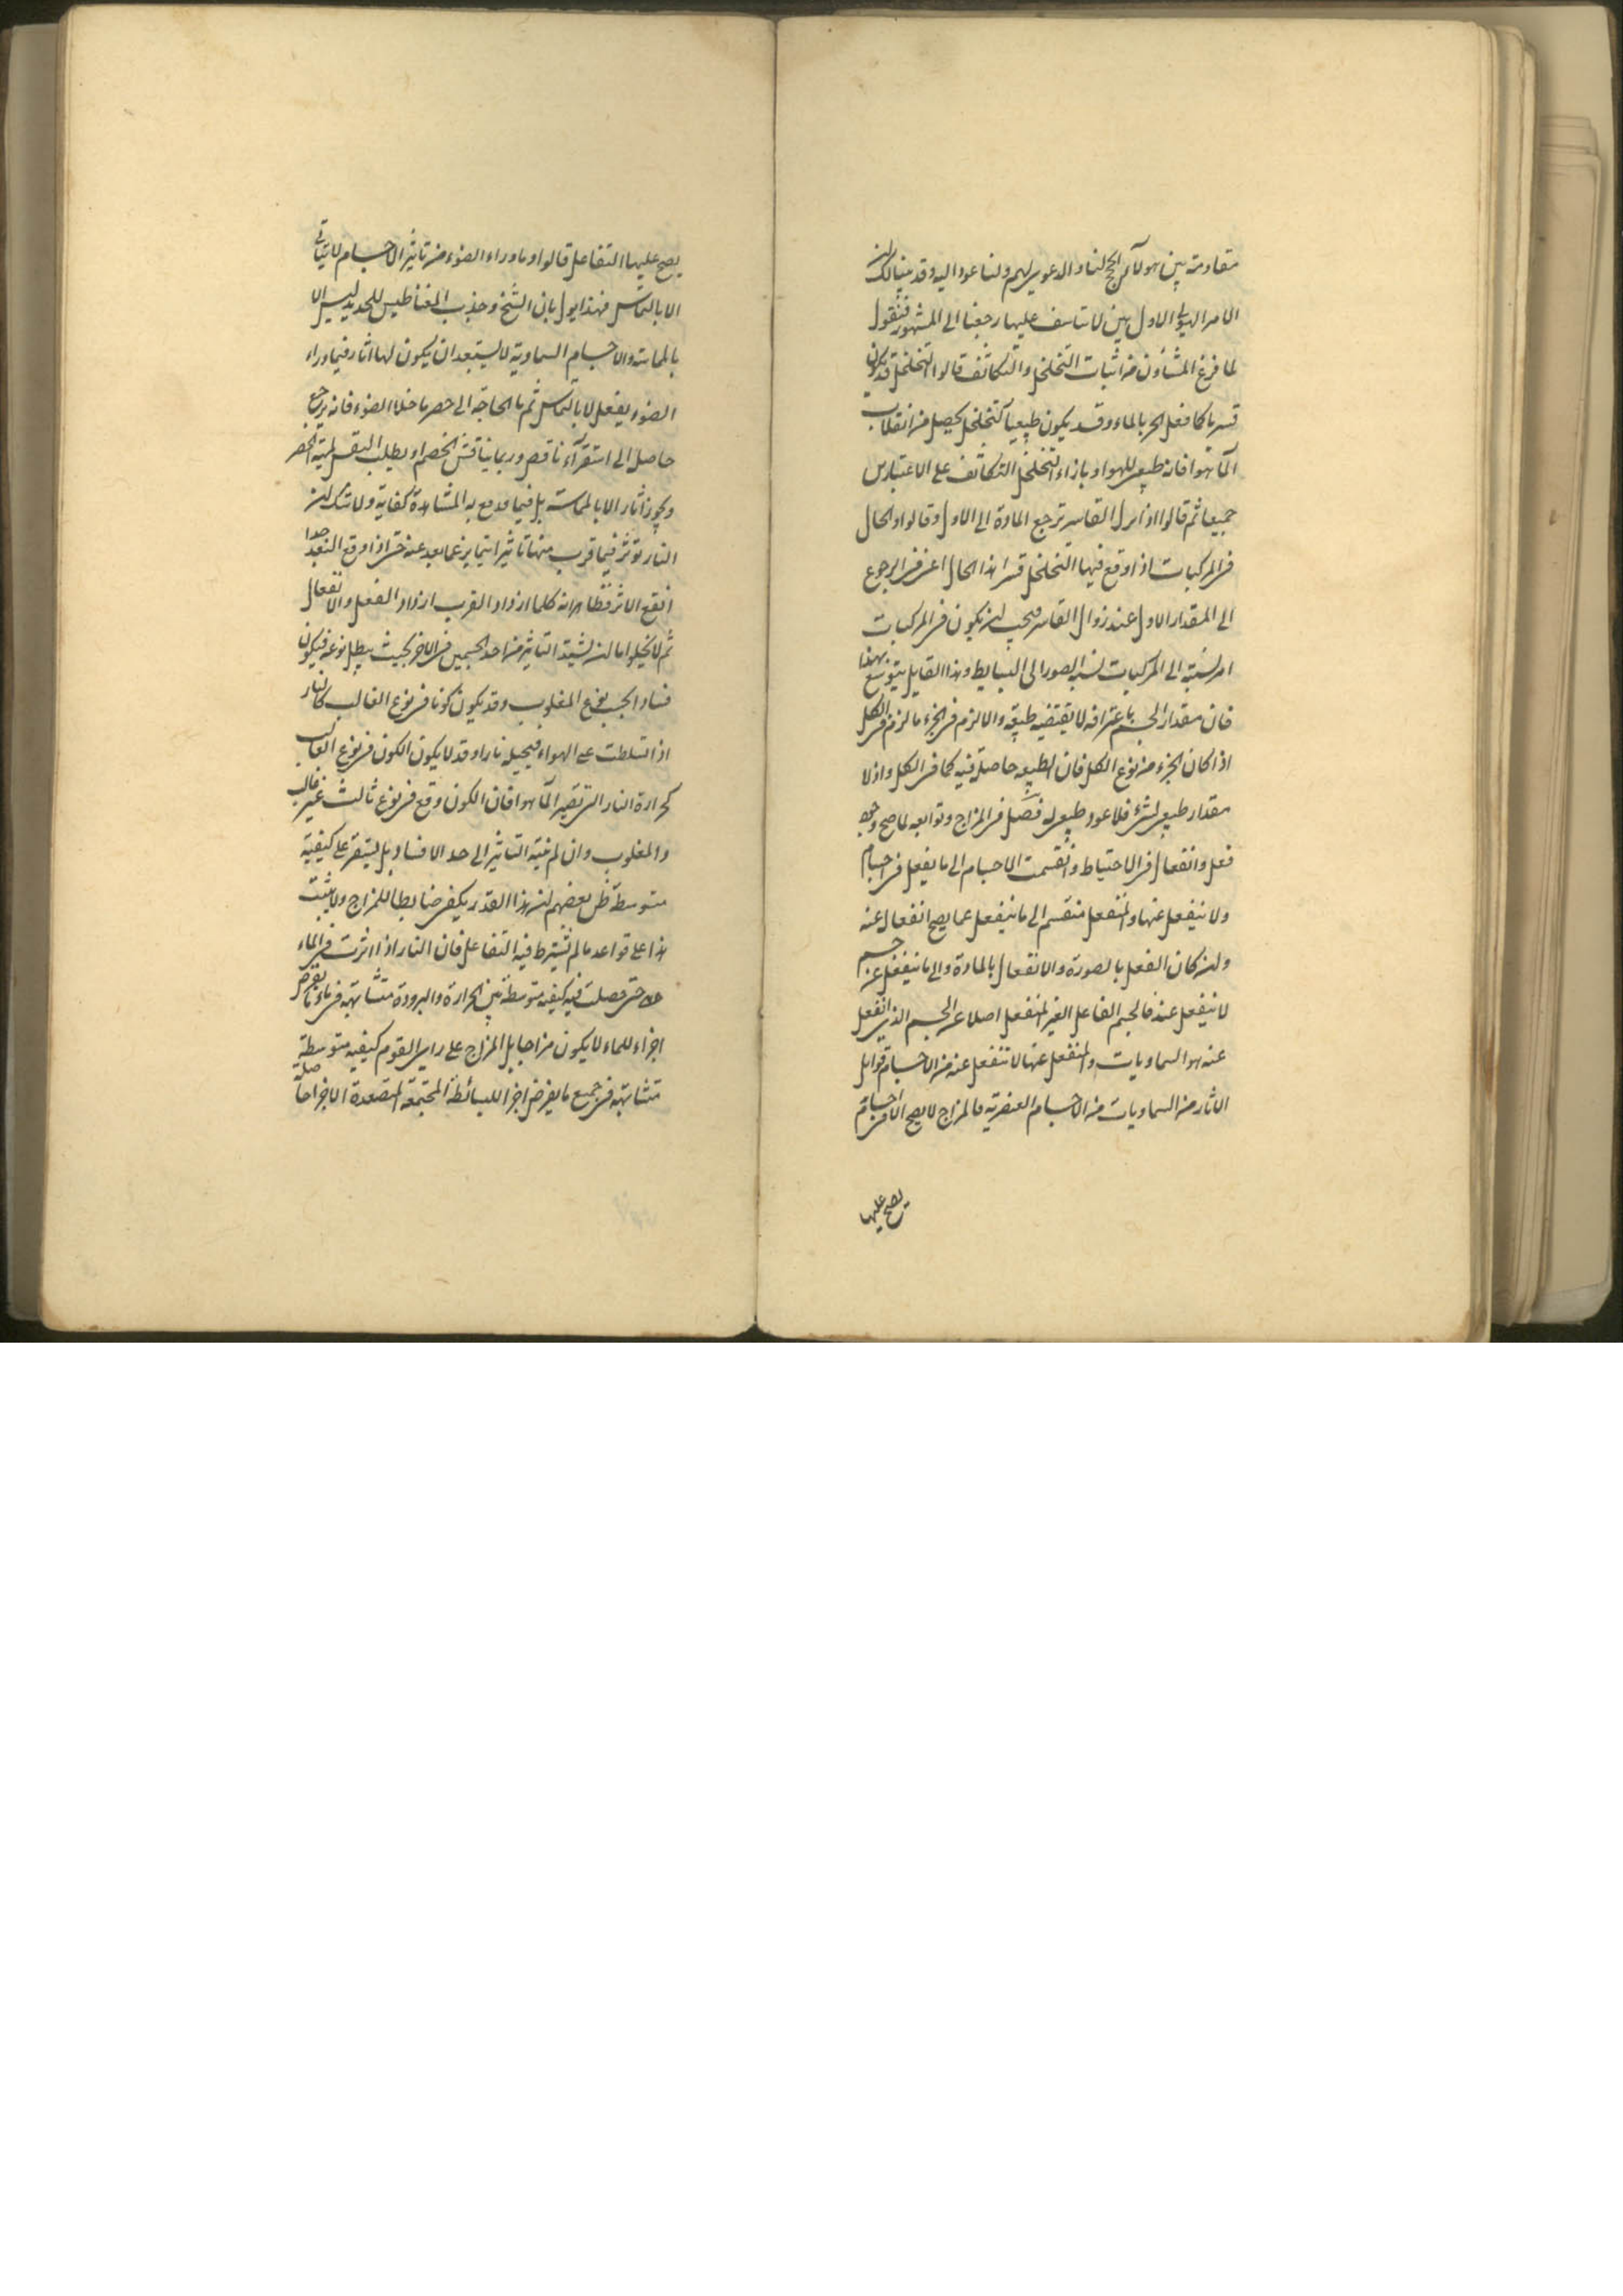 مقاومة بين هولاء الحجج لنا والدعوي لهم ولنا عود اليه وقد بينا لك ان
الامر الهيولي الاول بين لا تاسف عليها رجعنا الى المشهور فنقول
لما فرغ المشاؤن من اثبات التخلخل والتكاثف قالوا التخلخل قد يكون
قسريا كما فعل الحر بالماء وقد يكون طبيعيا كتخلخل يحصل من انقلاب
الماء هوا فانه طبيعى للهوا وبازاء التخلخل التكاثف على الاعتبارين
جميعا ثم قالوا اذا زال القاسر ترجع المادة الى الاول وقالوا والحال
فى المركبات اذا وقع فيها التخلخل قسرا هذا الحال اعنى فى الرجوع
الى المقدار الاول عند زوال القاسر فيجب ان يكون فى المركبات
امر نسبته الى المركبات نسبة الصور الى البسايط وهذا القايل يتوسع بهذا
فان مقدار الجسم باعترافه لا يقتضيه طبيعته والا لزم فى الجزء ما لزم فى الكل
اذا كان الجزء من نوع الكل فان الطبيعه حاصلة فيه كما فى الكل واذ لا
مقدار طبيعى لشئ فلا عود طبيعى له فصل فى المزاج وتوابعه لما صح وجود
فعل وانفعال فى الاحتياط وانقسمت الاجسام الى ما يفعل فى اجسام
ولا ينفعل عنها والمنفعل منقسم الى ما ينفعل عما يصح انفعال عنه
وان كان الفعل بالصورة والانفعال بالمادة والى ما ينفعل عن جسم
لا ينفعل عنه فالجسم الفاعل الغير المنفعل اصلا عن الجسم الذى انفعل
عنه هو السماويات والمنفعل عنها لا تنفعل عنه من الاجسام قوابل
الاثار من السماويات من الاجسام العنصرية فالمزاج لا يصح الا فى اجسام
يصح عليها
يصح عليها التفاعل قالوا وما وراء الضوء من تاثير الاجسام لا يتاتى
الا بالتماس فهذا يول بان الشخ وجذب المغناطيس للحديد ليس الا
بالمماسة والاجسام السماوية لا يستبعد ان يكون لها اثار فيما وراء
الضوء يفعل لا بالتماس ثم ما الحاجة الى حصر ما خلا الضوء فانه يرجع
حاصل الى استقرآء ناقص وربما يناقش الخصم او يطلب النفس لمية الحصر
ويجوز اثار الا بالمماسة بل فيما وقع به المشاهدة كفاية ولا شك ان
النار تؤثر فيما قرب منها تاثيرا يتمايز عما بعد عنه حتى اذا وقع البعد جدا
انقع الاثر فظاهر انه كلما ازداد القرب ازداد الفعل والانفعال
ثم لا يخلوا اما ان يشتد التاثير من احد الجسمين فى الاخر بحيث يبطل نوعه فيكون
فسادا بحسب نوع المغلوب وقد يكون كونا فى نوع الغالب كالنار
اذا تسلطت على الهواء فيحيله نارا وقد لا يكون الكون فى نوع الغالب
كحرارة النار التى تصير الماء هوا فان الكون وقع فى نوع ثالث غير غالب
والمغلوب وان لم ينته التاثير الى حد الافساد بل يستقر على كيفية
متوسطة ظن بعضهم ان هذا القدر يكفى ضابطا للمزاج ولا يثبت
هذا على قواعد ما لم يشترط فيه التفاعل فان النار اذا اثرت فى الماء
حتى حصلت فيه كيفيه متوسطة بين الحرارة والبرودة متشابهة فى ما يفرض
اجزاء للماء لا يكون مزاجا بل المزاج على راى القوم كيفيه متوسطة
متشابهة فى جميع ما يفرض اجزا للبسائط المجتمعة المتصعدة الاجزا حاصلة